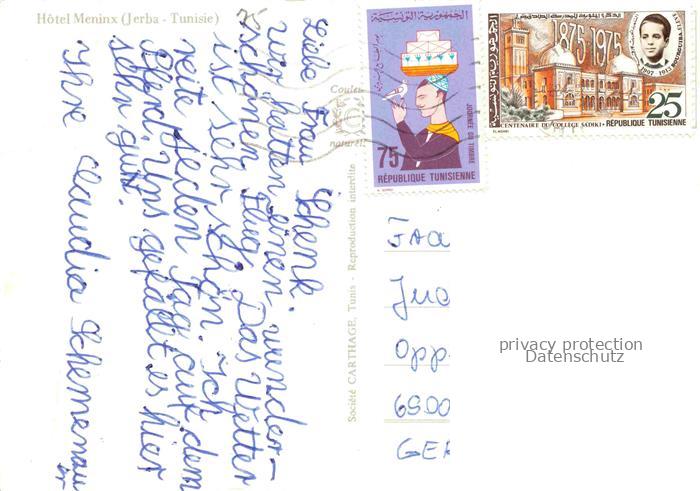 Hôtel Meninx (Jerba - Tunisie)
Liebe Frau Schenk.
wir hatten einen wunder-
schönen Flug. Das Wetter
ist sehr schön. Ich
reite jeden Tag auf dem
Pferd. Uns gefällt es hier
sehr gut.
Ihre Claudia Schemenau
er
75
Couleurs
naturelles
Société CARTHAGE, Tunis - Reproduction interdite
الجمهورية التونسية
JOURNEE DU TIMBRE
75
RÉPUBLIQUE TUNISIENNE
1875-1975
25
CENTENAIRE DU COLLEGE SADIKI - RÉPUBLIQUE TUNISIENNE
Opp
GER
privacy protection
Datenschutz